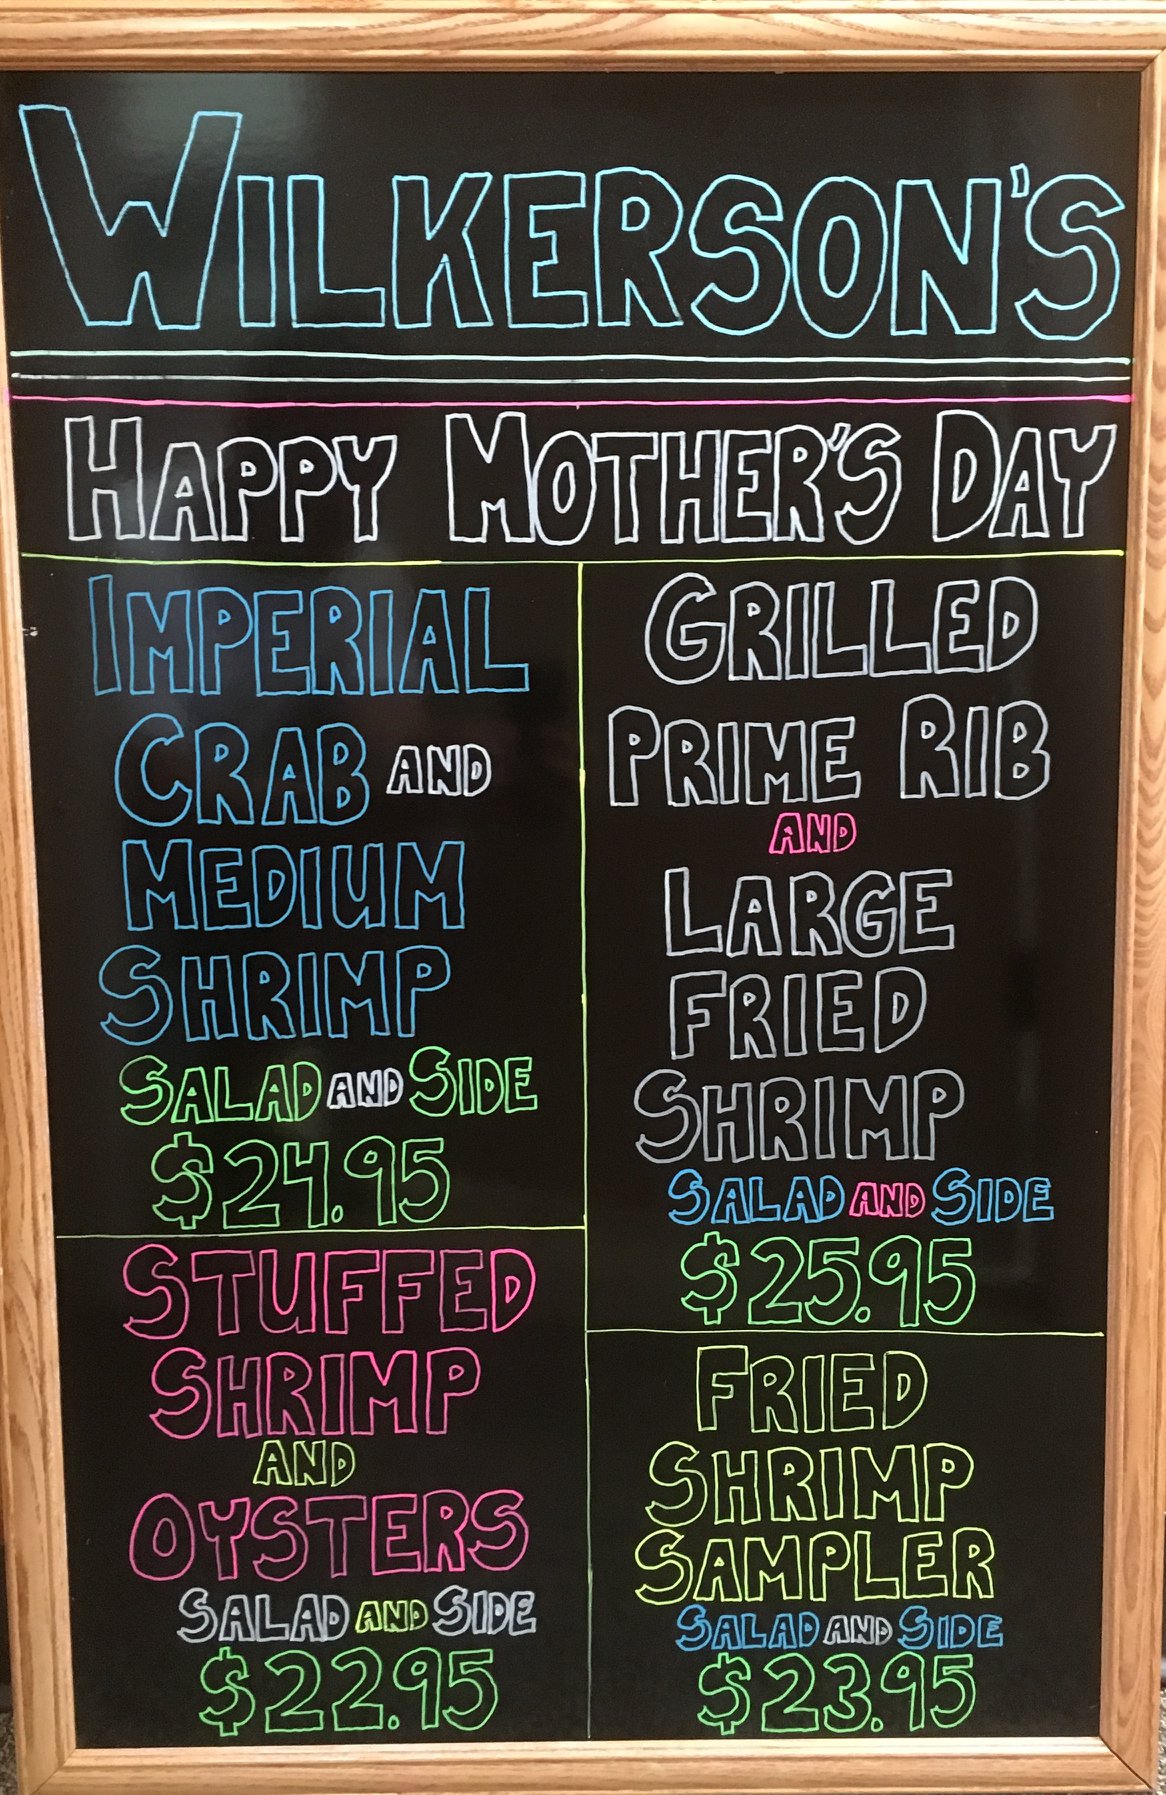 WILKERSON'S
HAPPY MOTHER'S DAY
IMPERIAL
CRAB AND
MEDIUM
SHRIMP
SALAD AND SIDE
$24.95
STUFFED
SHRIMP
AND
OYSTERS
SALAD AND SIDE
$22.95
GRILLED
PRIME RIB
AND
LARGE
FRIED
SHRIMP
SALAD AND SIDE
$25.95
FRIED
SHRIMP
SAMPLER
SALAD AND SIDE
$23.95